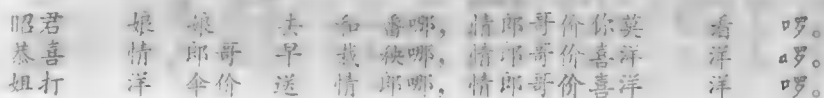 昭君娘娘去和番哪，情郎哥价你莫看啰。
恭喜情郎哥早栽秧哪，情郎哥价喜洋洋啰。
姐打洋伞价送情郎哪，情郎哥价喜洋洋啰。